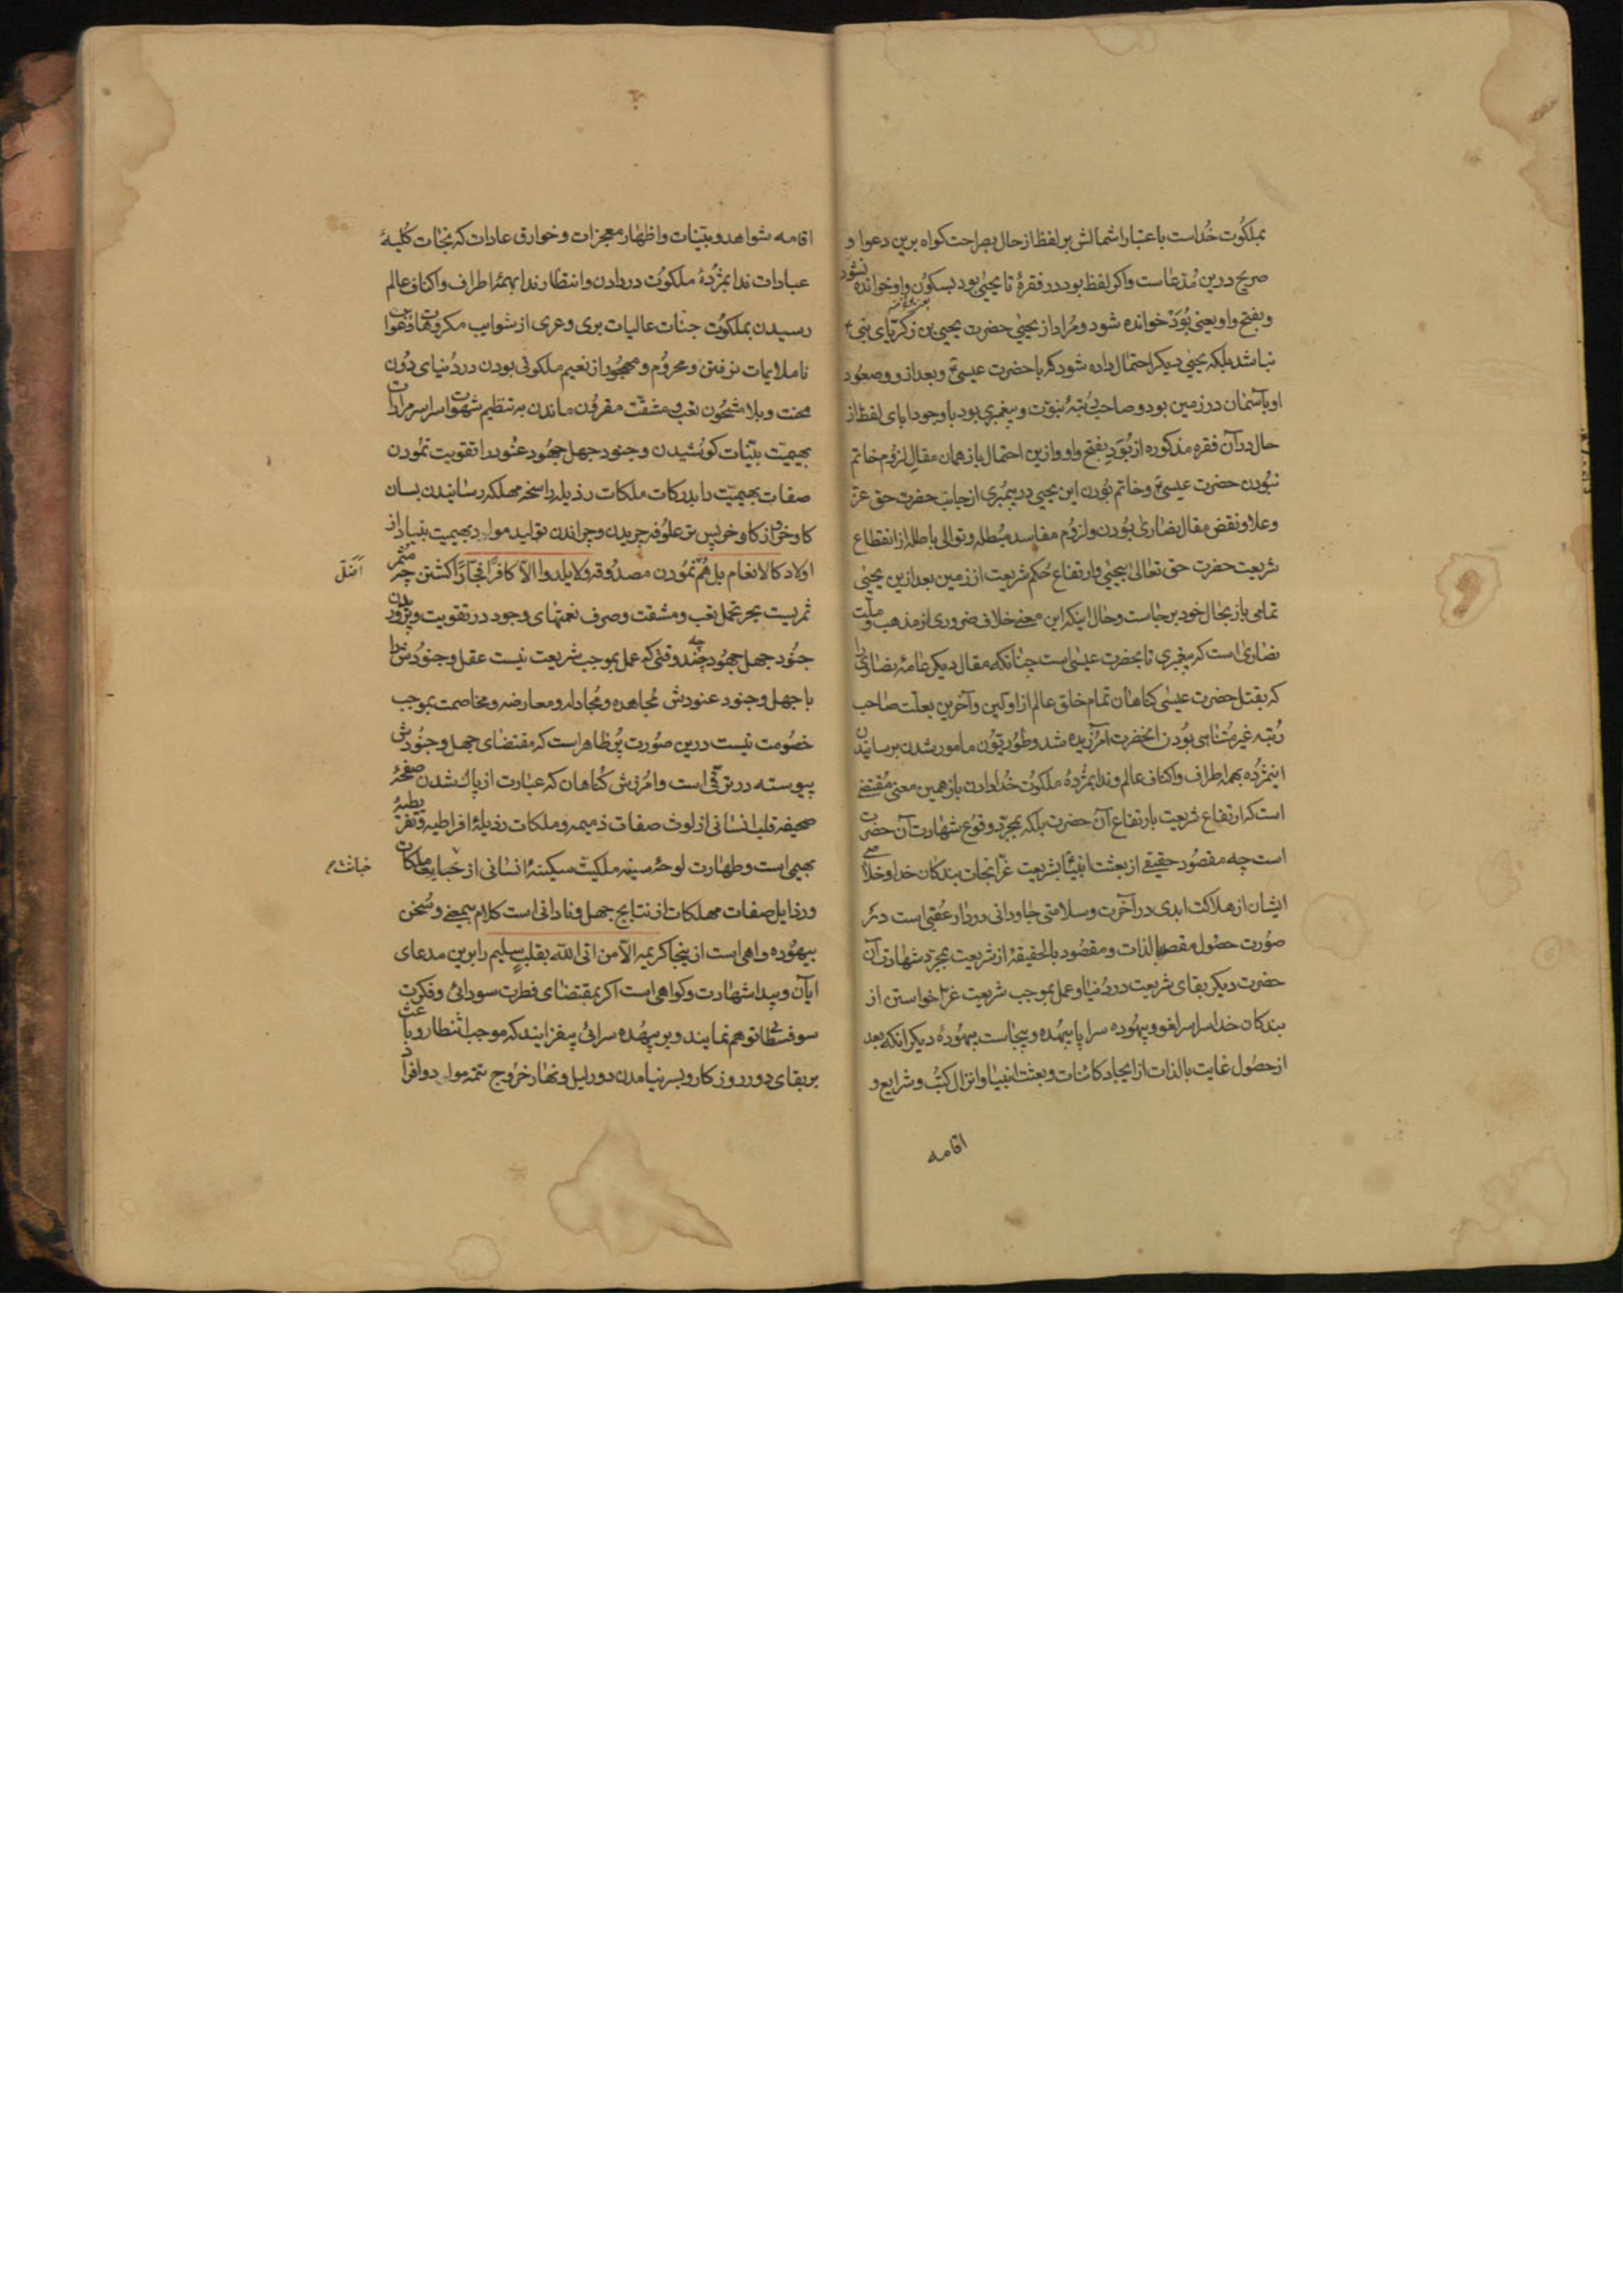 بملکوت خداست باعتبار اشمالش بر لفظ از حال بصراحت کواه برین دعوا و
صریح درین مدعاست واکر لفظ بود در فقرهٔ تا یحیی بود بسکون واو خوانده نشود
وبفتح واو یعنی بُوَدْ خوانده شود ومراد از یحیی حضرت یحیی بن زکریای نبی ع
نباشد بلکه یحیی دیکر احتمال داده شود که با حضرت عیسی ع وبعد از و وصعود
او بآسمان در زمین بود وصاحب رتبهٔ نبوت وپیغمبری بود باوجود ابای لفظ از
حال در آن فقره مذکوره از بُوَد بفتح واو وازین احتمال باز همان مقال لزوم خاتم
نبودن حضرت عیسی ع وخاتم بودن این یحیی در پیمبری از جانب حضرت حق عز
وعلا ونقض مقال نصاری بودن ولزوم مفاسد مبطله وتوالی باطله از انقطاع
شریعت حضرت حق تعالی بیحیی وارتفاع حکم شریعت از زمین بعد ازین یحیی
تمامی باز بحال خود بر جاست وحال اینکه این معنی خلاف ضروری از مذهب وملت
نصاری است که پیغمبری تا بحضرت عیسی است چنانکه مقال دیکر عامهٔ نصاری را
که بقتل حضرت عیسی کناهان تمام خلق عالم از اولین وآخرین بعلت صاحب
رتبه غیر متناهی بودن انحضرت آمرزیده شد وطوریون مامور شدن برسانیدن
اینمژده بهمه اطراف واکناف عالم وندا بمژدهٔ ملکوت خدا دادن باز همین معنی مقتضی
است که ارتفاع شریعت بارتفاع آن حضرت بلکه بمجرد وقوع شهادت آن حضرت
است چه مقصود حقیقی از بعثت انبیا بشریعت غرا نجات بندکان خدا وخلاصی
ایشان از هلاکت ابدی در آخرت وسلامتی جاودانی در دار عقبی است درین
صورت حصول مقصد بالذات ومقصود بالحقیقهٔ از شریعت بمجرد شهادت آن
حضرت دیکر بقای شریعت در دنیا وعمل بموجب شریعت غرا خواستن از
بندکان خدا سراسر لغو وبیهوده سراپا بیهده وبیجاست بیهودهٔ دیکر انکه بعد
از حصول غایت بالذات از ایجاد کائنات وبعثت انبیا وانزال کتب وشرایع و
اقامه
اقامه شواهد وبینات واظهار معجزات وخوارق عادات که نجات کلیهٔ
عبادات ندا بمژدهٔ ملکوت در دادن وانتظار ندا بهمهٔ اطراف واکناف عالم
رسیدن بملکوت جنات عالیات بری وعری از شوایب مکروهات
ناملایمات نرفتن ومحروم ومهجور از نعیم ملکوتی بودن در دنیای دون
محنت وبلا مشحون بتعب ومشقت مقرون ماندن به تنظیم شهوات سراسر مرادات
بهیمیت بتینات کوشیدن وجنود جهل جهود عنود را تقویت نمودن
صفات بهیمیت را بدرکات ملکات رذیله راسخه مهلکه رسانیدن بسان
کاو وخر از کاو وخر پس تر علوفه چریدن وچراندن تولید مواد بهیمیت بنیاد از
اولاد کالانعام بل هم نمودن مصدوقه ولا یلدوا الا کافرا فجّارا کشتن چه مثمر
اَضَلّ
ثمریست بجز تحمل تعب ومشقت وصرف نعمتهای وجود در تقویت وپروردن
جنود جهل جهود چه چند وقتی که عمل بموجب شریعت نیست عقل وجنودش را
با جهل وجنود عنودش مجاهده ومجادله ومعارضه ومخاصمت بموجب
خصومت نیست درین صورت پر ظاهر است که مقتضای جهل وجنودش
پیوسته در ترقی است وامرزش کناهان که عبارت از پاک شدن صفحهٔ
صحیفه قلب انسانی از لوث صفات ذمیمه وملکات رذیلهٔ افراطیه وتفریطیهٔ
بهیمی است وطهارت لوحهٔ سینه ملکیت سکینهٔ انسانی از خبایث ملکات
خباثت
ورذایل صفات مهلکات از نتایج جهل ونادانی است کلام بیمعنی وسخن
بیهوده واهی است از ینجا کریمه الا من اتی الله بقلب سلیم را برین مدعای
ایان وپیدا شهادت وکواهی است اکر بمقتضای فطرت سودائی وفکرت
سوفسطائی توهم نمایند وبر بیهده سرائی بیفزایند که موجب انتظار وباعث
بر بقای دور روزکار وبسر نیامدن دور لیل ونهار خروج تتمه مواد وافراد